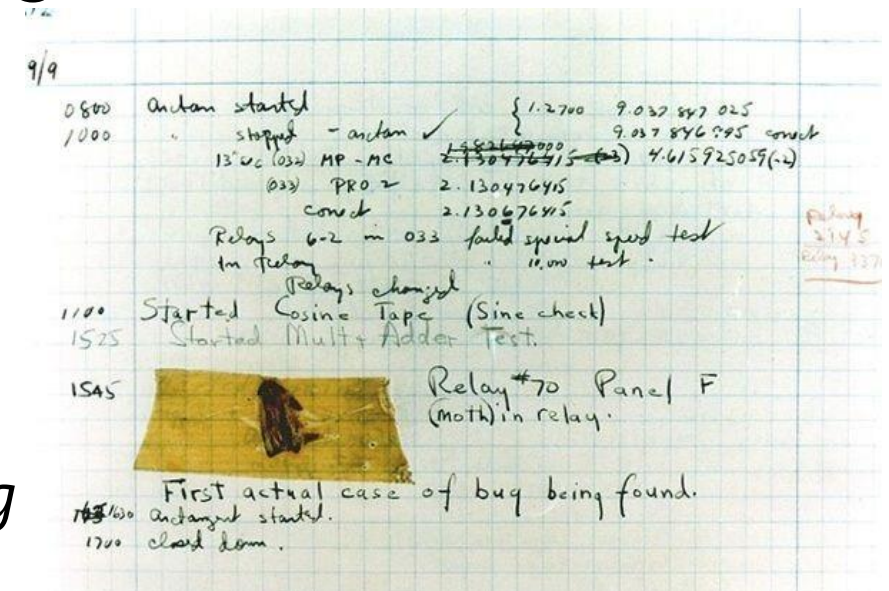 9/9
0800 antan started { 1.2700 9.037 847 025
1000 " stopped - antan ✓ 9.037 846 995 conect
13"uc (032) MP - MC 2.130476415 (-3) 4.615925059(-2)
(033) PRO 2 2.130476415
conect 2.130676415
Relays 6-2 in 033 failed special speed test
In Relay " 10,000 test .
Relay
2145
Relay 337
Relays changed
1100 Started Cosine Tape (Sine check)
1525 Started Mult + Adder Test.
1545 Relay #70 Panel F
(moth) in relay.
First actual case of bug being found.
1630 antangent started.
1700 closed down.
g